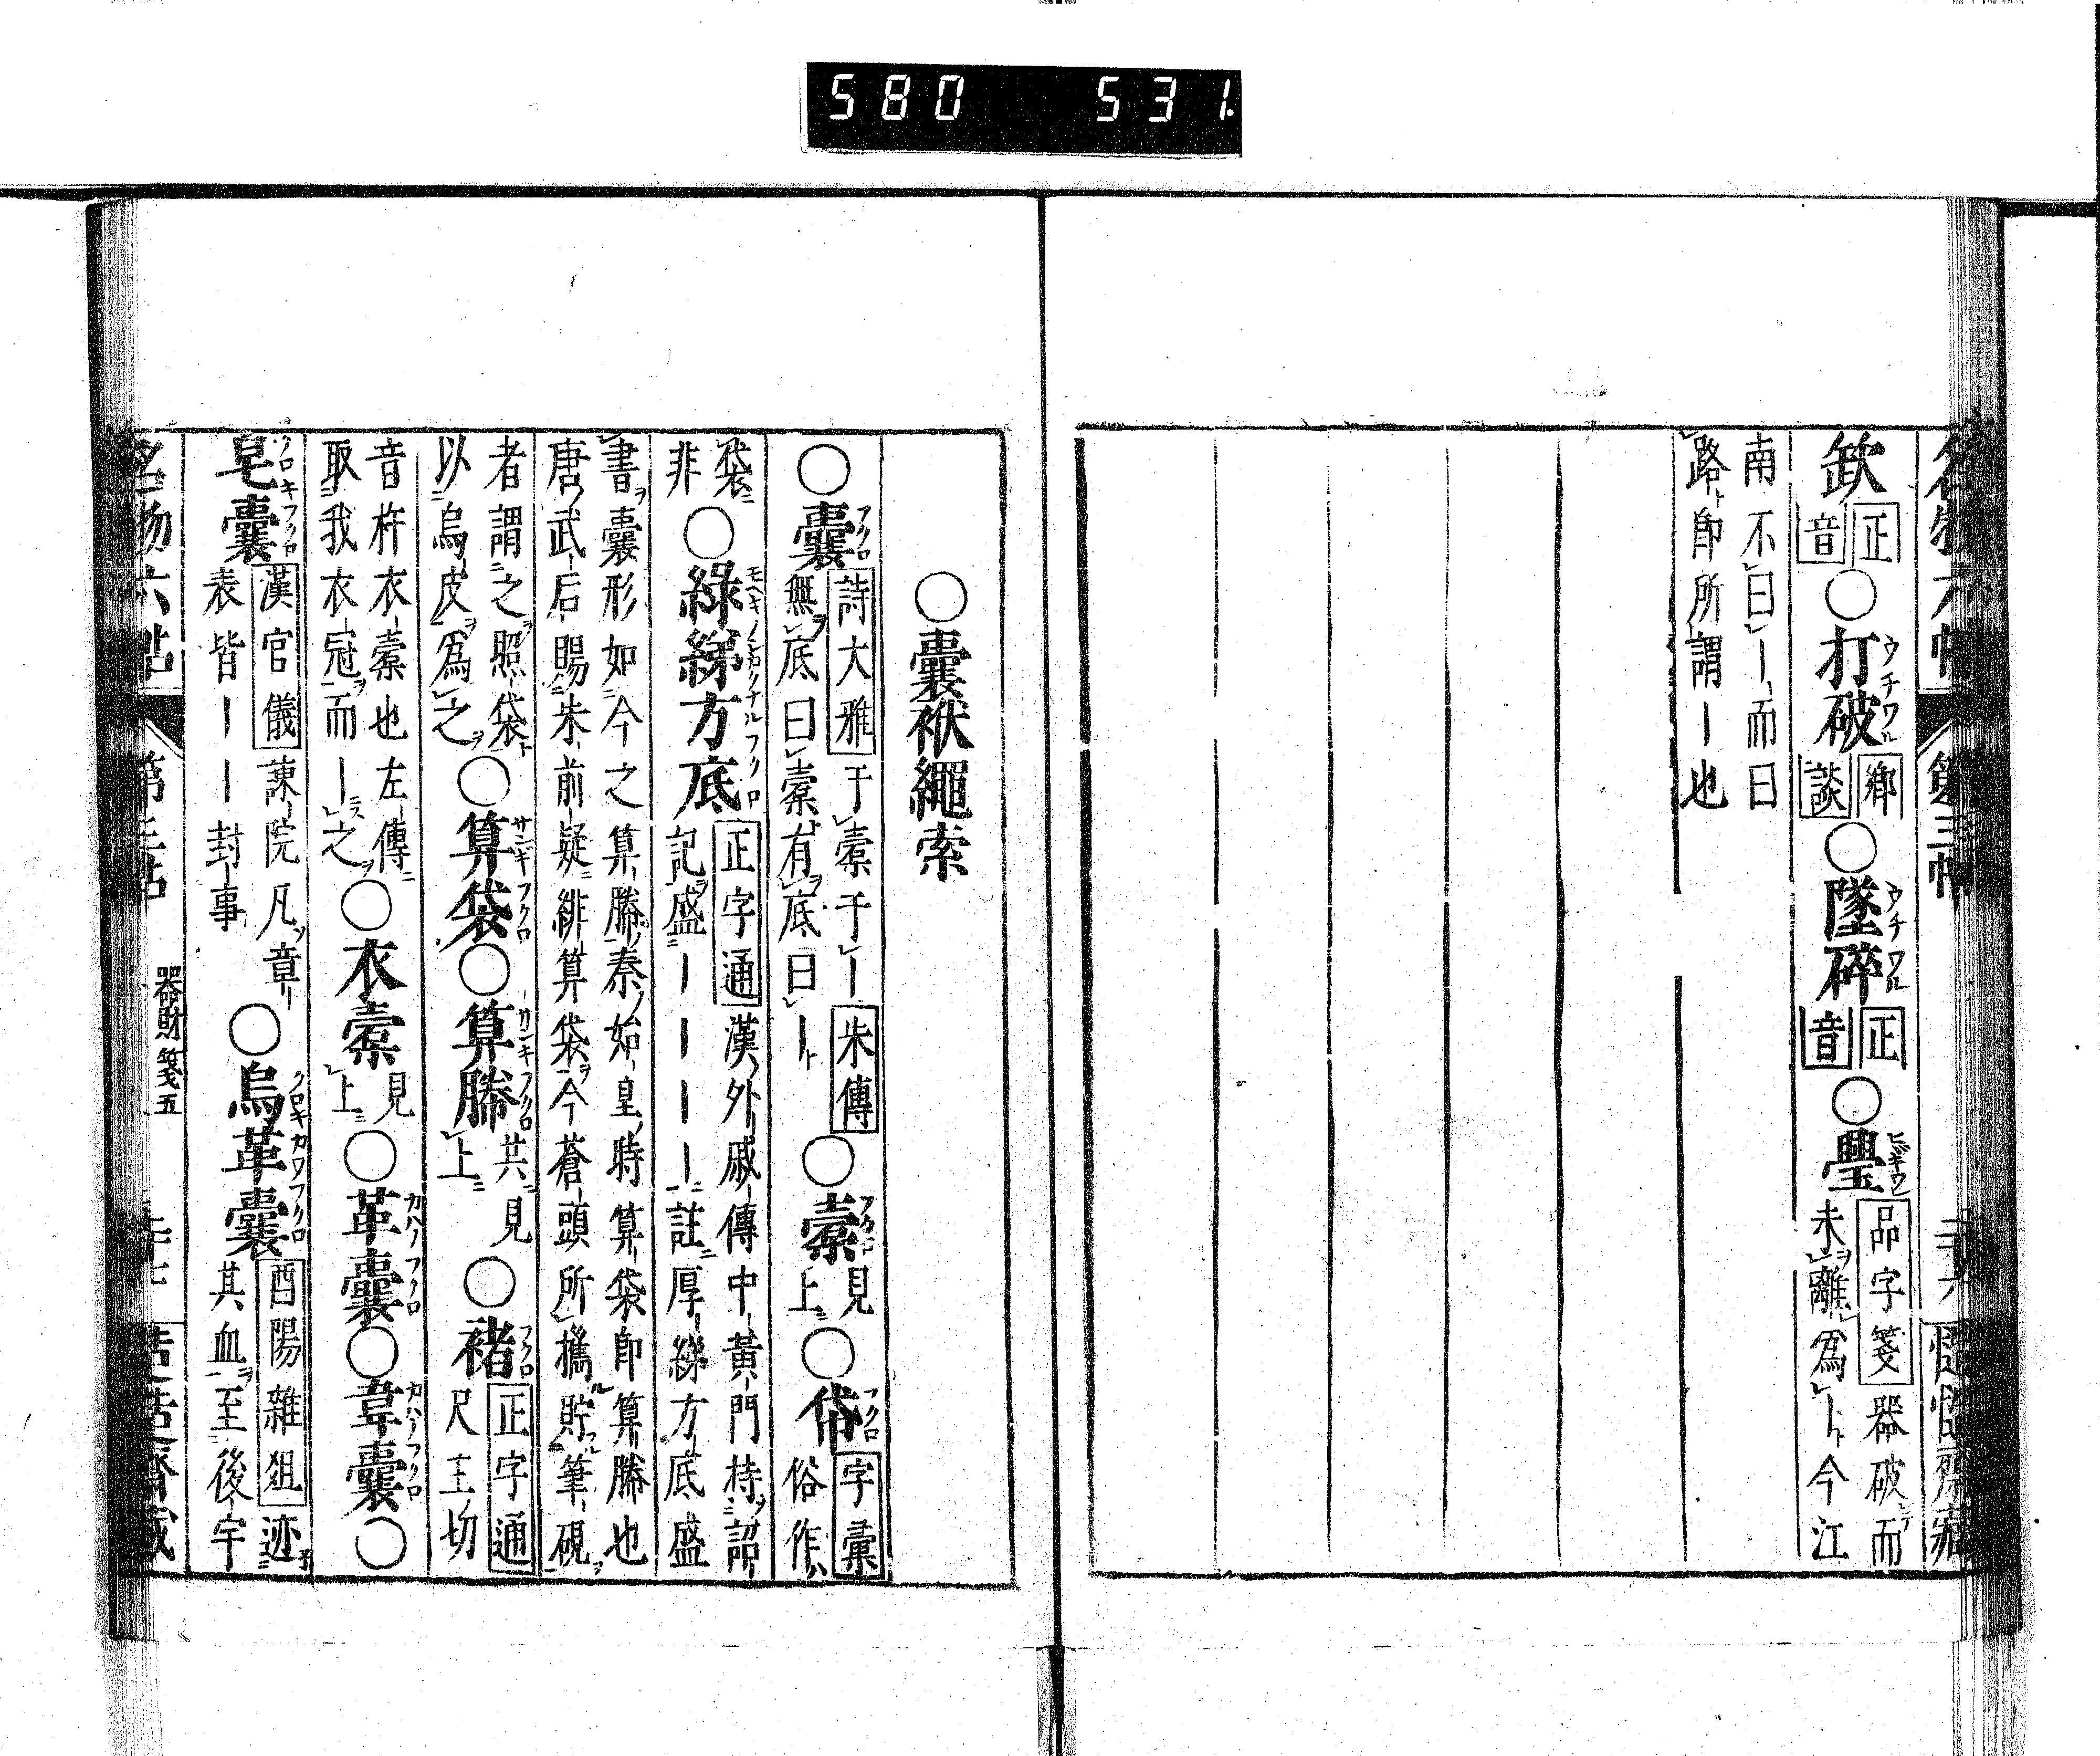 580 531
名物六帖 第三帖 二十六 𢘫𢘫齋藏
缼 正音 ○打破 ウチワル 鄉談 ○墜碎 ウチワル 正音 ○璺 品字箋 器破而未離爲｜今江
南不曰｜而曰路卽所謂｜也
○囊袱繩索
○囊 フクロ 詩大雅 于橐于｜ 朱傳 無底曰橐有底曰｜ ○橐 フクロ 見上 ○帒 フクロ 字彙 俗作
袋非 ○綠綈方底 正字通 漢外戚傳中黃門持詔記盛｜｜｜｜註厚綈方底盛
書囊形如今之算幐秦始皇時算袋卽算幐也唐武后賜朱前疑緋算袋今蒼頭所擕貯筆硯
者謂之照袋以烏皮爲之 ○算袋 サンギフクロ ○算幐 サンギフクロ 共見上 ○褚 フクロ 正字通 尺主切
音杵衣橐也左傳取我衣冠而｜之 ○衣橐 見上 ○革囊 カハノフクロ ○韋囊 カハノフクロ ○
皂囊 クロキフクロ 漢官儀 諫院凡章表皆｜｜封事 ○烏革囊 クロキカワフクロ 酉陽雜俎 迹其血至後宇
名物六帖 第三帖 器財箋五 二十七